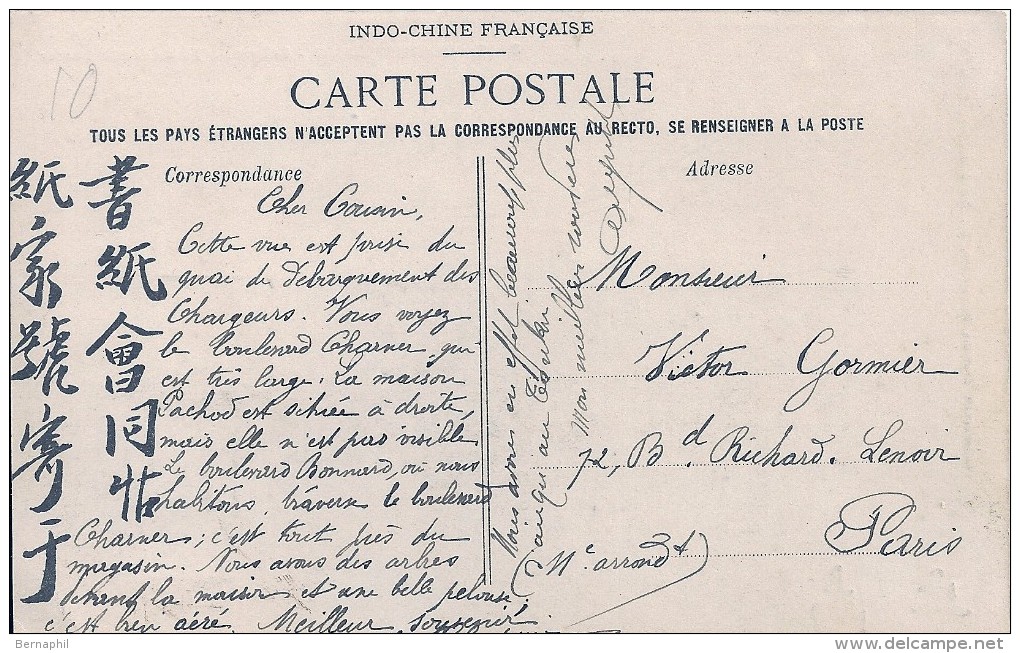 INDO-CHINE FRANÇAISE
CARTE POSTALE
TOUS LES PAYS ÉTRANGERS N'ACCEPTENT PAS LA CORRESPONDANCE AU RECTO, SE RENSEIGNER A LA POSTE
10
Correspondance
Cher Cousin,
Cette vue est prise du
quai de Débarquement des
Chargeurs. Vous voyez
le boulevard Charner qui
est très large. La maison
Pachod est située à droite,
mais elle n'est pas visible
Le boulevard Bonnard, où nous
habitons, traverse le boulevard
Charner; c'est tout près du
magasin. Nous avons des arbres
devant la maison et une belle pelouse
c'est bien aéré. Meilleur souvenir
Nous avons en effet beaucoup plus
Mon meilleur souvenir
書紙會同帖
紙家號寄于
Adresse
Monsieur
Victor Gormier
72, Bd Richard. Lenoir
Paris
XIe arrondt
Bernaphil
delcampe.net